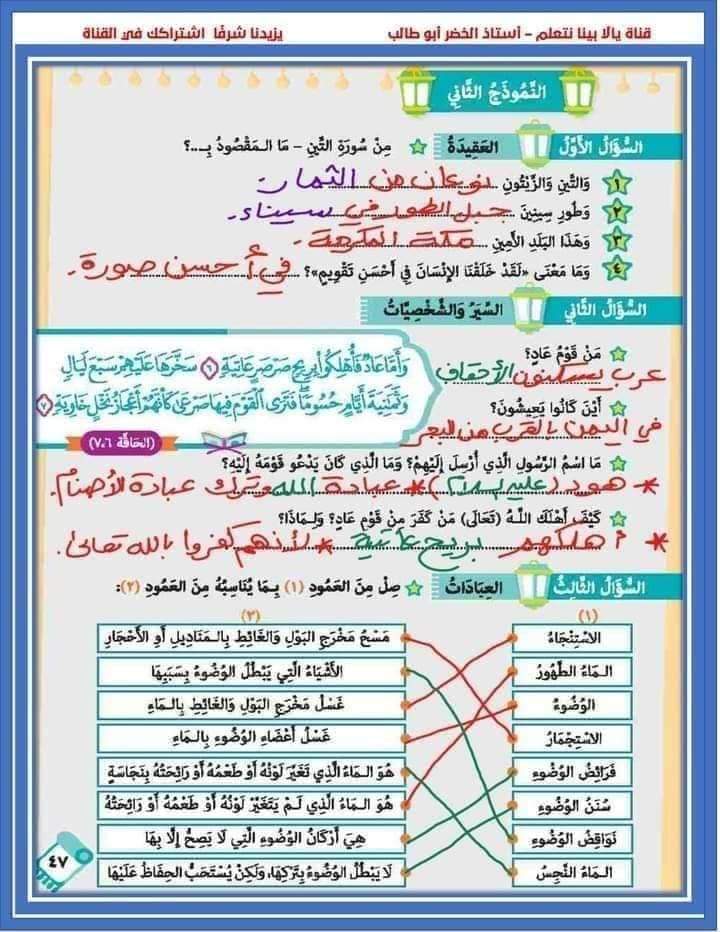 قناة يالا بينا نتعلم - أستاذ الخضر أبو طالب
يزيدنا شرفًا اشتراكك في القناة
النَّمُوذَجُ الثَّانِي
السُّؤَالُ الأَوَّلُ العَقِيدَةُ مِنْ سُورَةِ التِّينِ – مَا الـمَقْصُودُ بِـ...؟
١ وَالتِّينِ وَالزَّيْتُونِ نوعان من الثمار.
٢ وَطُورِ سِينِينَ جبل الطور في سيناء.
٣ وَهَذَا البَلَدِ الأَمِينِ مكة المكرمة.
٤ وَمَا مَعْنَى «لَقَدْ خَلَقْنَا الإِنْسَانَ فِي أَحْسَنِ تَقْوِيمٍ»؟ في أحسن صورة.
السُّؤَالُ الثَّانِي السِّيَرُ وَالشَّخْصِيَّاتُ
مَنْ قَوْمُ عَادٍ؟
عرب يسكنون الأحقاف
أَيْنَ كَانُوا يَعِيشُونَ؟
في اليمن بالقرب من البحر
وَأَمَّا عَادٌ فَأُهْلِكُوا۟ بِرِيحٍ صَرْصَرٍ عَاتِيَةٍ ٦ سَخَّرَهَا عَلَيْهِمْ سَبْعَ لَيَالٍ
وَثَمَٰنِيَةَ أَيَّامٍ حُسُومًا فَتَرَى ٱلْقَوْمَ فِيهَا صَرْعَىٰ كَأَنَّهُمْ أَعْجَازُ نَخْلٍ خَاوِيَةٍ ٧
(الحَاقَّة ٧،٦)
مَا اسْمُ الرَّسُولِ الَّذِي أُرْسِلَ إِلَيْهِمْ؟ وَمَا الَّذِي كَانَ يَدْعُو قَوْمَهُ إِلَيْهِ؟
* هود (عليه السلام) * عبادة الله وترك عبادة الأصنام.
كَيْفَ أَهْلَكَ اللَّهُ (تَعَالَى) مَنْ كَفَرَ مِنْ قَوْمِ عَادٍ؟ وَلِـمَاذَا؟
* أهلكهم بريح عاتية * لأنهم كفروا بالله تعالى.
السُّؤَالُ الثَّالِثُ العِبَادَاتُ صِلْ مِنَ العَمُودِ (١) بِـمَا يُنَاسِبُهُ مِنَ العَمُودِ (٢):
(١) (٢)
الاسْتِنْجَاءُ مَسْحُ مَخْرَجِ البَوْلِ وَالغَائِطِ بِالـمَنَادِيلِ أَوِ الأَحْجَارِ
الـمَاءُ الطَّهُورُ الأَشْيَاءُ الَّتِي يَبْطُلُ الوُضُوءُ بِسَبَبِهَا
الوُضُوءُ غَسْلُ مَخْرَجِ البَوْلِ وَالغَائِطِ بِالـمَاءِ
الاسْتِجْمَارُ غَسْلُ أَعْضَاءِ الوُضُوءِ بِالـمَاءِ
فَرَائِضُ الوُضُوءِ هُوَ الـمَاءُ الَّذِي تَغَيَّرَ لَوْنُهُ أَوْ طَعْمُهُ أَوْ رَائِحَتُهُ بِنَجَاسَةٍ
سُنَنُ الوُضُوءِ هُوَ الـمَاءُ الَّذِي لَـمْ يَتَغَيَّرْ لَوْنُهُ أَوْ طَعْمُهُ أَوْ رَائِحَتُهُ
نَوَاقِضُ الوُضُوءِ هِيَ أَرْكَانُ الوُضُوءِ الَّتِي لَا يَصِحُّ إِلَّا بِهَا
الـمَاءُ النَّجِسُ لَا يَبْطُلُ الوُضُوءُ بِتَرْكِهَا، وَلَكِنْ يُسْتَحَبُّ الحِفَاظُ عَلَيْهَا
٤٧